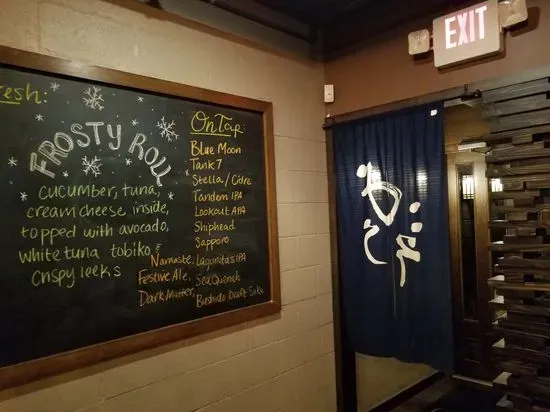 esh:
FROSTY ROLL
CUCUMBER, TUNA,
CREAM CHEESE INSIDE,
TOPPED WITH AVOCADO,
WHITE TUNA TOBIKO &
CRISPY LEEKS
On Tap
Blue Moon
Tank 7
Stella / Cidre
Tandem IPA
Lookout APA
Shiphead
Sapporo
Namaste, Lagunitas IPA
Festive Ale, Sea Quench
Dark Matter, Bushido Draft Sake
EXIT